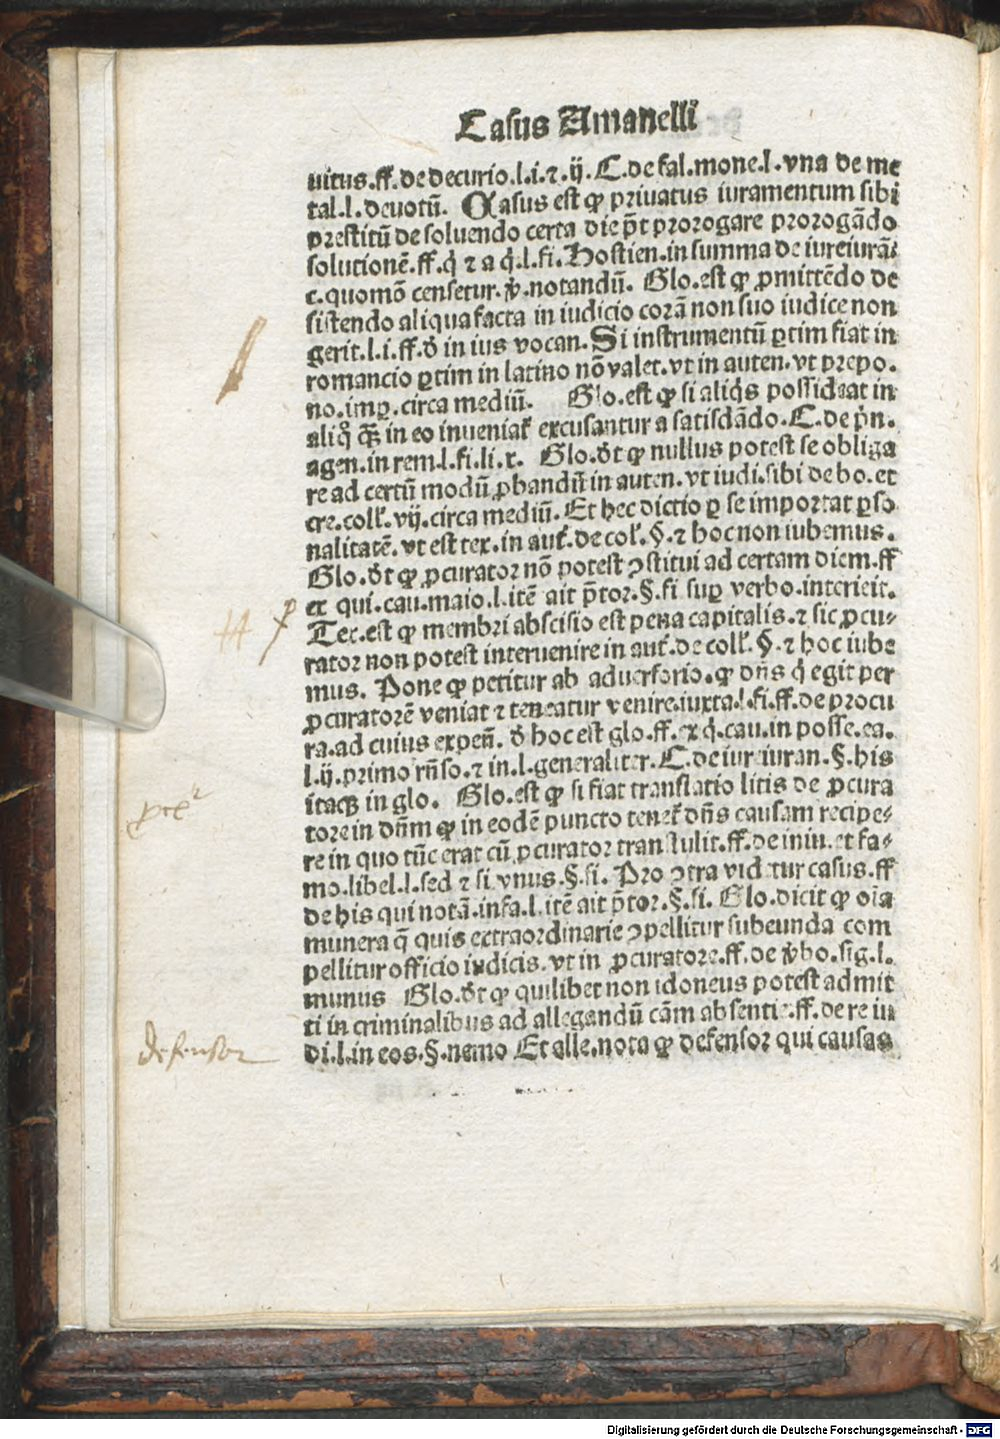 Casus Amanelli
uitus.ff.de decurio.l.i.⁊.ij.C.de fal.mone.l.vna de me
tal.l.deuotū. Casus est ꝙ priuatus iuramentum sibi
prestitū de soluendo certa die pōt prorogare prorogādo
solutionē.ff.q̇ ⁊ a q̇.l.fi.Hostien.in summa de iureiurā⸗
c.quomō censetur.ꝟ.notandū. Glo.est ꝙ ꝓmittēdo de
sistendo aliqua facta in iudicio corā non suo iudice non
gerit.l.i.ff.ð in ius vocan.Si instrumentū ꝑtim fiat in
romancio ꝑtim in latino nō valet.vt in auten.vt prepo.
no.imꝑ.circa mediū. Glo.est ꝙ si aliq̇s possideat in
agen.in rem.l.fi.li.x. Glo.ðt ꝙ nullus potest se obliga
re ad certū modū ꝓbandū in auten.vt iudi.sibi de bo.et
cre.coll̕.vij.circa mediū. Et hec dictio ꝑ se importat ꝑso
nalitatē.vt est tex.in aut̕.de col̕.§.⁊ hoc non iubemus.
Glo.ðt ꝙ ꝓcurator nō potest ↄstitui ad certam diem.ff
ex qui.cau.maio.l.itē ait p̄tor.§.fi suꝑ verbo.interieit.
Tex.est ꝙ membri abscisio est pena capitalis.⁊ sic ꝓcu⸗
rator non potest interuenire in aut̕.de coll̕.§.⁊ hoc iube
mus. Pone ꝙ petitur ab aduersorio.ꝙ dn̄s q̇ egit per
ꝓcuratorē veniat ⁊ teneatur venire.iuxta.l.fi.ff.de procu
ra.ad cuius expen̄. ð hoc est glo.ff.ex q̇.cau.in posse.ea.
l.ij.primo rn̄so.⁊ in.l.generaliter.C.de iureiuran.§.his
itaqꝫ in glo. Glo.est ꝙ si fiat translatio litis de ꝓcura
tore in dn̄m ꝙ in eodē puncto tenet̕ dn̄s causam recipe⸗
re in quo tūc erat cū ꝓcurator transtulit.ff.de iniu.et fa⸗
mo.libel.l.sed ⁊ si vnus.§.si. Pro ↄtra videtur casus.ff
de his qui notā.infa.l.itē ait p̄tor.§.si. Glo.dicit ꝙ oīa
munera q̄ quis extraordinarie ↄpellitur subeunda com
pellitur officio iudicis.vt in ꝓcuratore.ff.de ꝟbo.sig.l.
munus Glo.ðt ꝙ quilibet non idoneus potest admit
ti in criminalibus ad allegandū cām absentie.ff.de re iu
di.l.in eos.§.nemo Et alle.nota ꝙ defensor qui causas
defensor
Digitalisierung gefördert durch die Deutsche Forschungsgemeinschaft - DFG